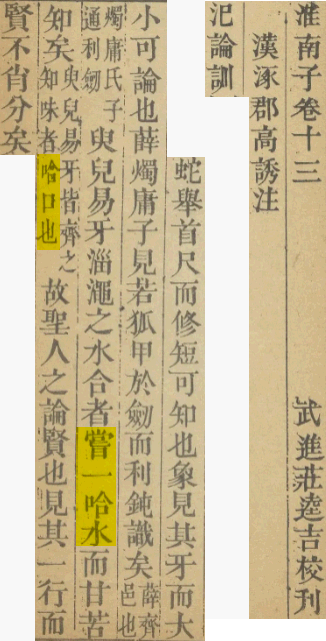 淮南子卷十三　武進莊逵吉校刊
漢涿郡高誘注
氾論訓
蛇舉首尺而修短可知也象見其牙而大
小可論也薛燭庸子見若狐甲於劒而利鈍識矣薛齊邑也
燭庸氏子通利劒臾兒易牙淄澠之水合者嘗一哈水而甘苦
知矣臾兒易牙皆齊之知味者哈口也故聖人之論賢也見其一行而
賢不肖分矣